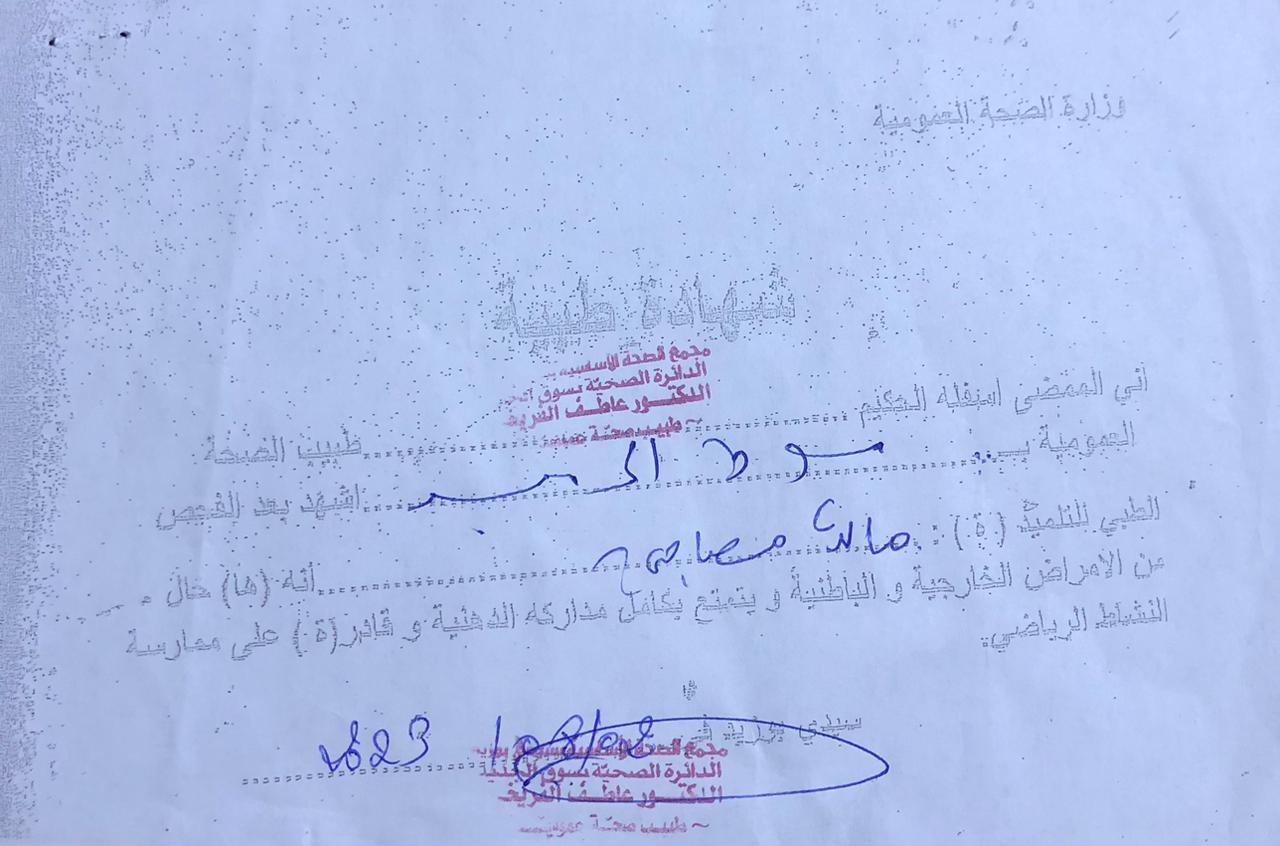 وزارة الصحة العمومية
شهادة طبية
مجمع الصحة الأساسية
الدائرة الصحية بسوق
الدكتور عاطف الفريخ
~ طبيب صحة
اني الممضي اسفله الحكيم .......... طبيب الصحة
العمومية بـ .. سوق الجديد .......... اشهد بعد الفحص
الطبي للتلميذ (ة) : .......... أنه (ها) خال
من الامراض الخارجية و الباطنية و يتمتع بكامل مداركه الذهنية و قادر(ة) على ممارسة
النشاط الرياضي.
سيدي بوزيد في 02/08/2023
مجمع الصحة الأساسية بسيدي بوزيد
الدائرة الصحية بسوق الجديد
الدكتور عاطف الفريخ
~ طبيب صحة عمومية ~